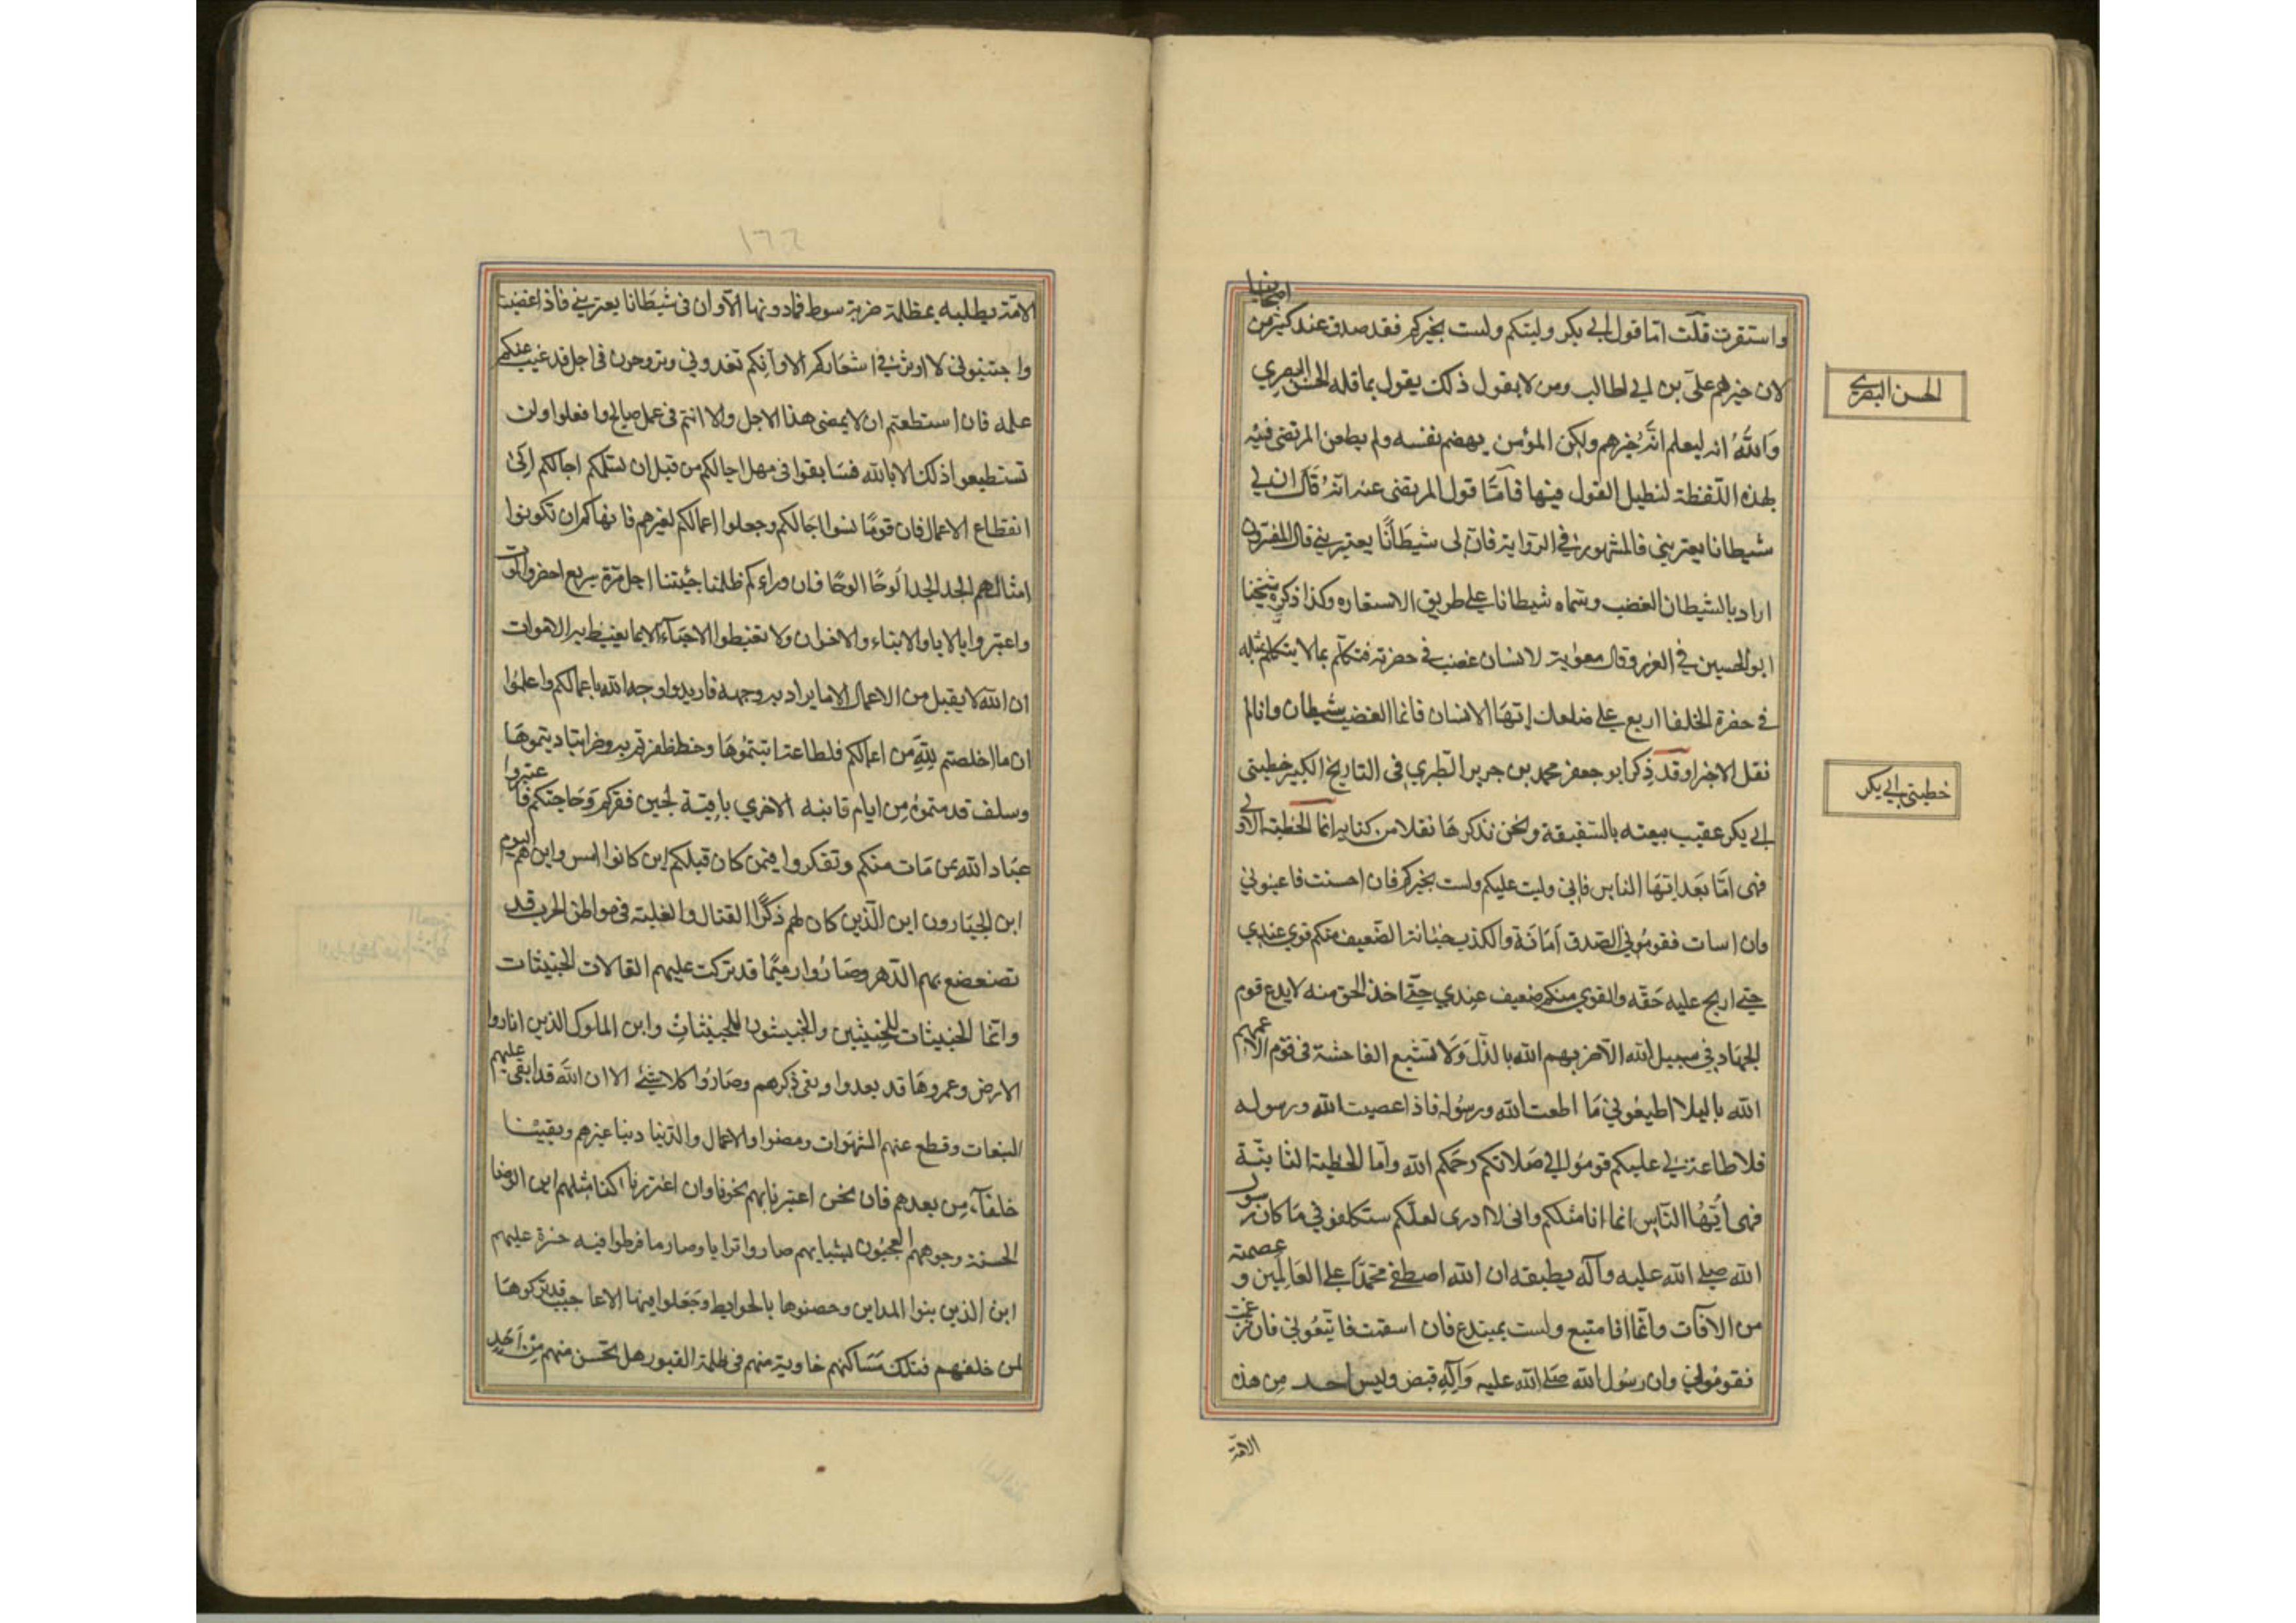 واستقرت قلت اما قول ابي بكر وليتكم ولست بخيركم فقد صدق عند كثير من اصحابنا
لان خيرهم علي بن ابي طالب ومن لا يقول ذلك يقول بما قله الحسن البصري
والله انه ليعلم انه خيرهم ولكن المؤمن يهضم نفسه ولم يطعن المرتضى فيه
بهذه اللفظة لنطيل القول فيها فامّا قول المرتضى عنه انه قال ان لي
شيطانا يعتريني فالمشهور في الرواية فان لى شيطانًا يعتريني قال المفسرون
اراد بالشيطان الغضب وسماه شيطانا على طريق الاستعاره وكذا ذكره شيخنا
ابو الحسين في الغرر وقال معوية لانسان غضب في حضرته فتكلم بما لا يتكلم بمثله
في حضرة الخلفا اربع على ضلعك ايها الانسان فانما الغضب شيطان وانا لم
نقل الا خيرا وقد ذكر ابو جعفر محمد بن جرير الطبري في التاريخ الكبير خطبتي
ابي بكر عقيب بيعته بالسقيفة ونحن نذكرها نقلا من كتابه اما الخطبة الاولى
فهى امّا بعد ايها الناس فاني وليت عليكم ولست بخيركم فان احسنت فاعينوني
وان اسات فقوموني الصدق امانة والكذب خيانة الضعيف منكم قوي عندي
حتى اريح عليه حقه والقوي منكم ضعيف عندي حتى اخذ الحق منه لا يدع قوم
الجهاد في سبيل الله الا ضربهم الله بالذل ولا تشيع الفاحشة في قوم الا عمهم
الله بالبلا اطيعوني ما اطعت الله ورسوله فاذا عصيت الله ورسوله
فلا طاعة لي عليكم قوموا الى صلاتكم رحمكم الله واما الخطبة الثانية
فهى ايها الناس انما انا مثلكم وانى لا ادرى لعلكم ستكلفوني ما كان رسول
الله صلى الله عليه وآله يطيقه ان الله اصطفى محمدا على العالمين وعصمه
من الآفات وانما انا متبع ولست بمبتدع فان استقمت فاتبعوني فان زغت
فقوموني وان رسول الله صلى الله عليه وآله قبض وليس احد من هذه
الامة
الحسن البصري
خطبتى ابي بكر
١٦٦
الامّة يطلبه بمظلمة ضربة سوط فما دونها الا وان لى شيطانا يعتريني فاذا غضبت
واجتنبوني لا اوثر في اشعاركم الا وانكم تغدوني وتروحون في اجل قد غيب عنكم
علمه فان استطعتم ان لا يمضى هذا الاجل والا انتم في عمل صالح وافعلوا ولن
تستطيعوا ذلك الا بالله فسابقوا في مهل اجالكم من قبل ان تسلمكم اجالكم الى
انقطاع الاعمال فان قومًا نسوا اجالكم وجعلوا اعمالكم لغيرهم فانهاكم ان تكونوا
امثالهم الجد الجد الوحًا الوحًا فان وراءكم اجل مرة سريع احضروا الموت
واعتبروا بالابا والابناء والاخوان ولا تغبطوا الاحياء الا بما يغبط به الاموات
ان الله لا يقبل من الاعمال الا ما يراد به وجهه فاريدوا وجه الله باعمالكم واعلموا
ان ما اخلصتم لله من اعمالكم فلطاعة
وسلف قدمتموه من ايام فانيه الاخري باقية لحين فقركم وحاجتكم فاعتبروا
عباد الله بمن مات منكم وتفكروا فيمن كان قبلكم اين كانوا امس واين هم اليوم
اين الجبارون اين الذين كان لهم ذكر القتال والغلبة فى مواطن الحرب قد
تضعضع بهم الدهر وصاروا رميمًا قد تركت عليهم القالات الخبيثات
وانما الخبيثات للخبيثين والخبيثون للخبيثات واين الملوك الذين اثاروا
الارض وعمروها قد بعدوا وبقى ذكرهم وصاروا كلا شئ الا ان الله قد ابقى عليهم
التبعات وقطع عنهم الشهوات ومضوا والاعمال والدنيا دنيا غيرهم وبقينا
خلفآء من بعدهم فان نحن اعتبرنا بهم نجونا وان اغتررنا كنا مثلهم اين الوضا
الحسنة وجوههم المعجبون بشبابهم صاروا ترابا وصار ما فرطوا فيه حسرة عليهم
اين الذين بنوا المداين وحصنوها بالحوايط وجعلوا فيها الاعاجيب قد تركوها
لمن خلفهم فتلك مساكنهم خاوية منهم فى ظلمة القبور هل تحس منهم من احد